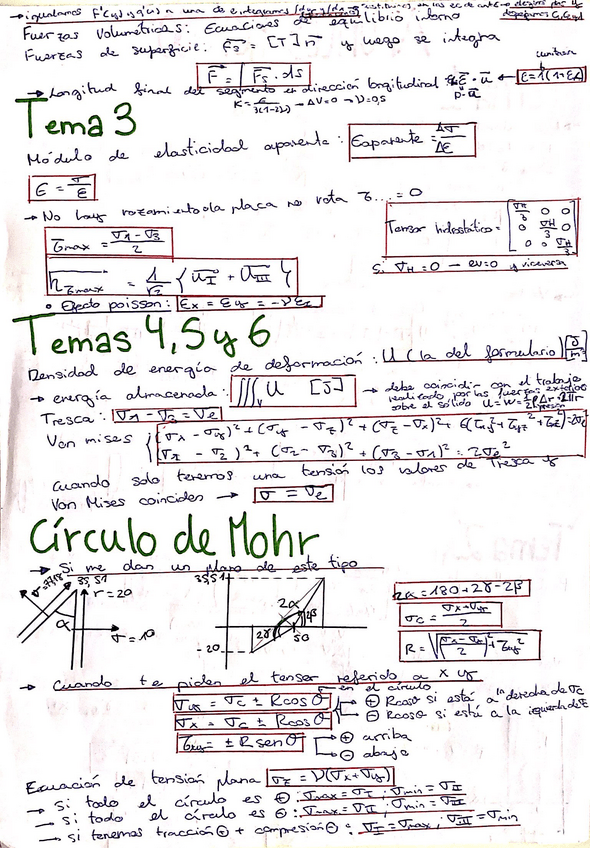 Fuerzas Volumétricas: Ecuaciones de equilibrio interno
Fuerzas de superficie: F_s = [T] n y luego se integra
F = ∫ F_s · ds
→ Longitud final del segmento en dirección longitudinal
K = E/3(1-2ν) → ΔV=0 → ν=0,5
Tema 3
Módulo de elasticidad aparente: E aparente = Δσ/Δε
E = σ/ε
→ No hay rozamiento o la placa no rota τ... = 0
τmax = (σ1 - σ3)/2
Tensor hidrostático = [σH/3 0 0
0 σH/3 0
0 0 σH/3]
n τmax = 1/√2 { u_I + u_III }
Si σH = 0 — ev=0 y viceversa
• Efecto poisson: εx = εy = -νεz
Temas 4, 5 y 6
Densidad de energía de deformación: U (la del formulario) [J/m³]
→ energía almacenada: ∭v U [J] → debe coincidir con el trabajo
realizado por las fuerzas exteriores
sobre el sólido
Tresca: σ1 - σ3 = σe
Von mises { (σx - σy)² + (σy - σz)² + (σz - σx)² + 6(τxy² + τyz² + τxz²) = 2σe²
(σ1 - σ2)² + (σ2 - σ3)² + (σ3 - σ1)² = 2σe²
Cuando solo tenemos una tensión los valores de Tresca y
Von Mises coinciden → σ = σe
Círculo de Mohr
→ Si me dan un plano de este tipo
35,51
τ = 20
α
σ = 10
35,51
-20
2α
2γ
2β
50
2α = 180 + 2γ - 2β
σc = (σx + σy)/2
R = √(((σx - σy)/2)² + τxy²)
→ Cuando te piden el tensor referido a x y
en el círculo
σy = σc ± R cos θ
σx = σc ± R cos θ
⊕ R cos θ si está a la derecha de σc
⊖ R cos θ si está a la izquierda de
τxy = ± R sen θ
⊕ arriba
⊖ abajo
Ecuación de tensión plana σz = ν(σx + σy)
→ Si todo el círculo es ⊕: σmax = σI; σmin = σII
→ si todo el círculo es ⊖: σmax = σII, σmin = σIII
→ si tenemos tracción ⊕ + compresión ⊖: σI = σmax; σIII = σmin